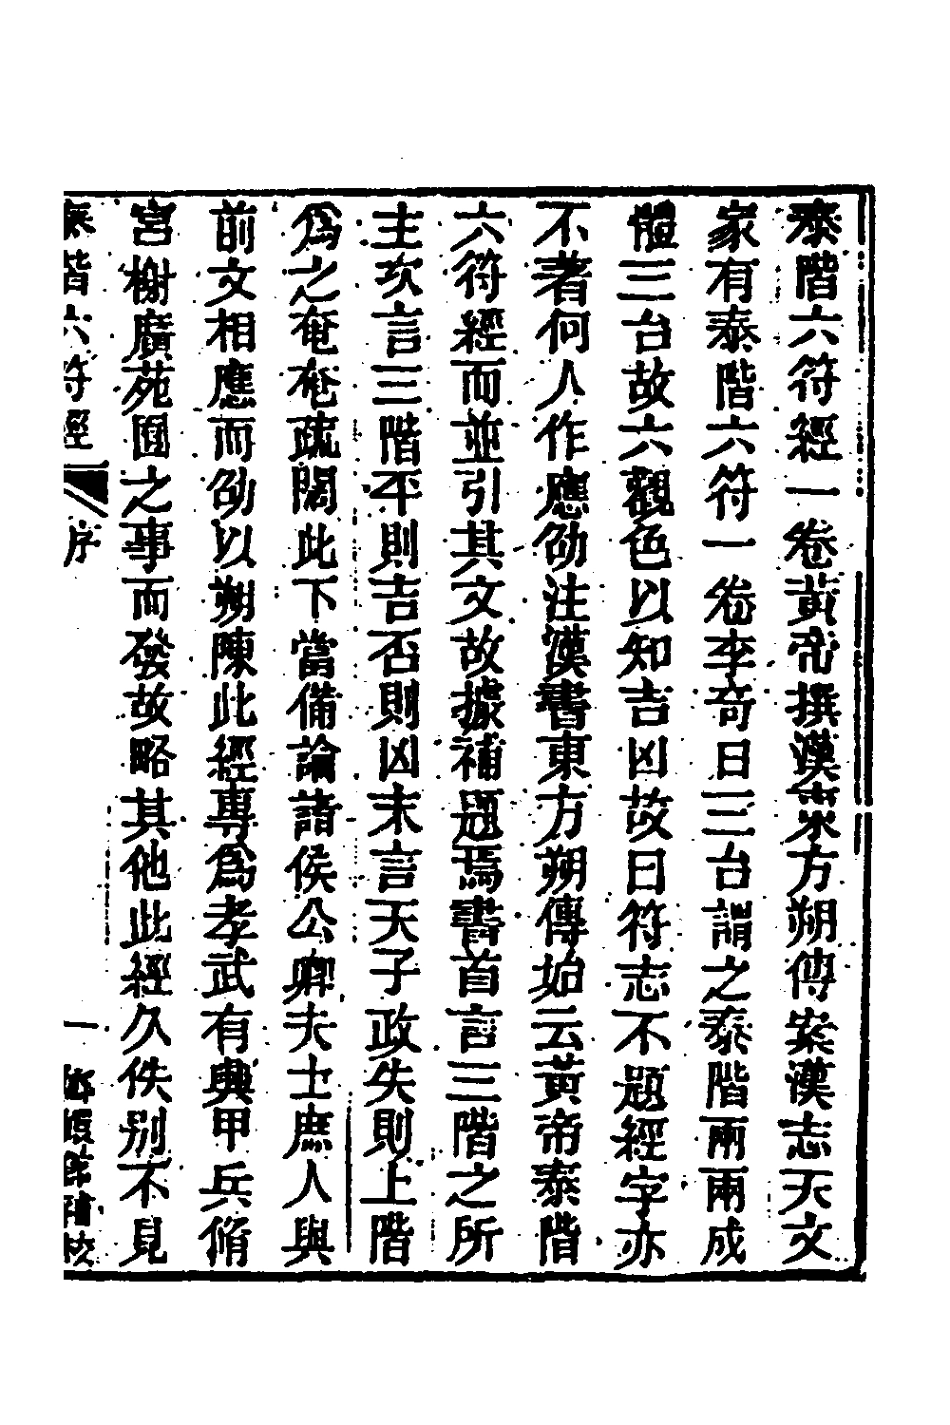 泰階六符經一卷黃帝撰漢東方朔傳案漢志天文
家有泰階六符一卷李奇曰三台謂之泰階兩兩成
體三台故六觀色以知吉凶故曰符志不題經字亦
不著何人作應劭注漢書東方朔傳始云黃帝泰階
六符經而並引其文故據補題焉書首言三階之所
主次言三階平則吉否則凶末言天子政失則上階
爲之奄奄疏闊此下當備論諸侯公卿大夫士庶人與
前文相應而劭以朔陳此經專爲孝武有興甲兵脩
宮榭廣苑囿之事而發故略其他此經久佚別不見
泰階六符經 序 一